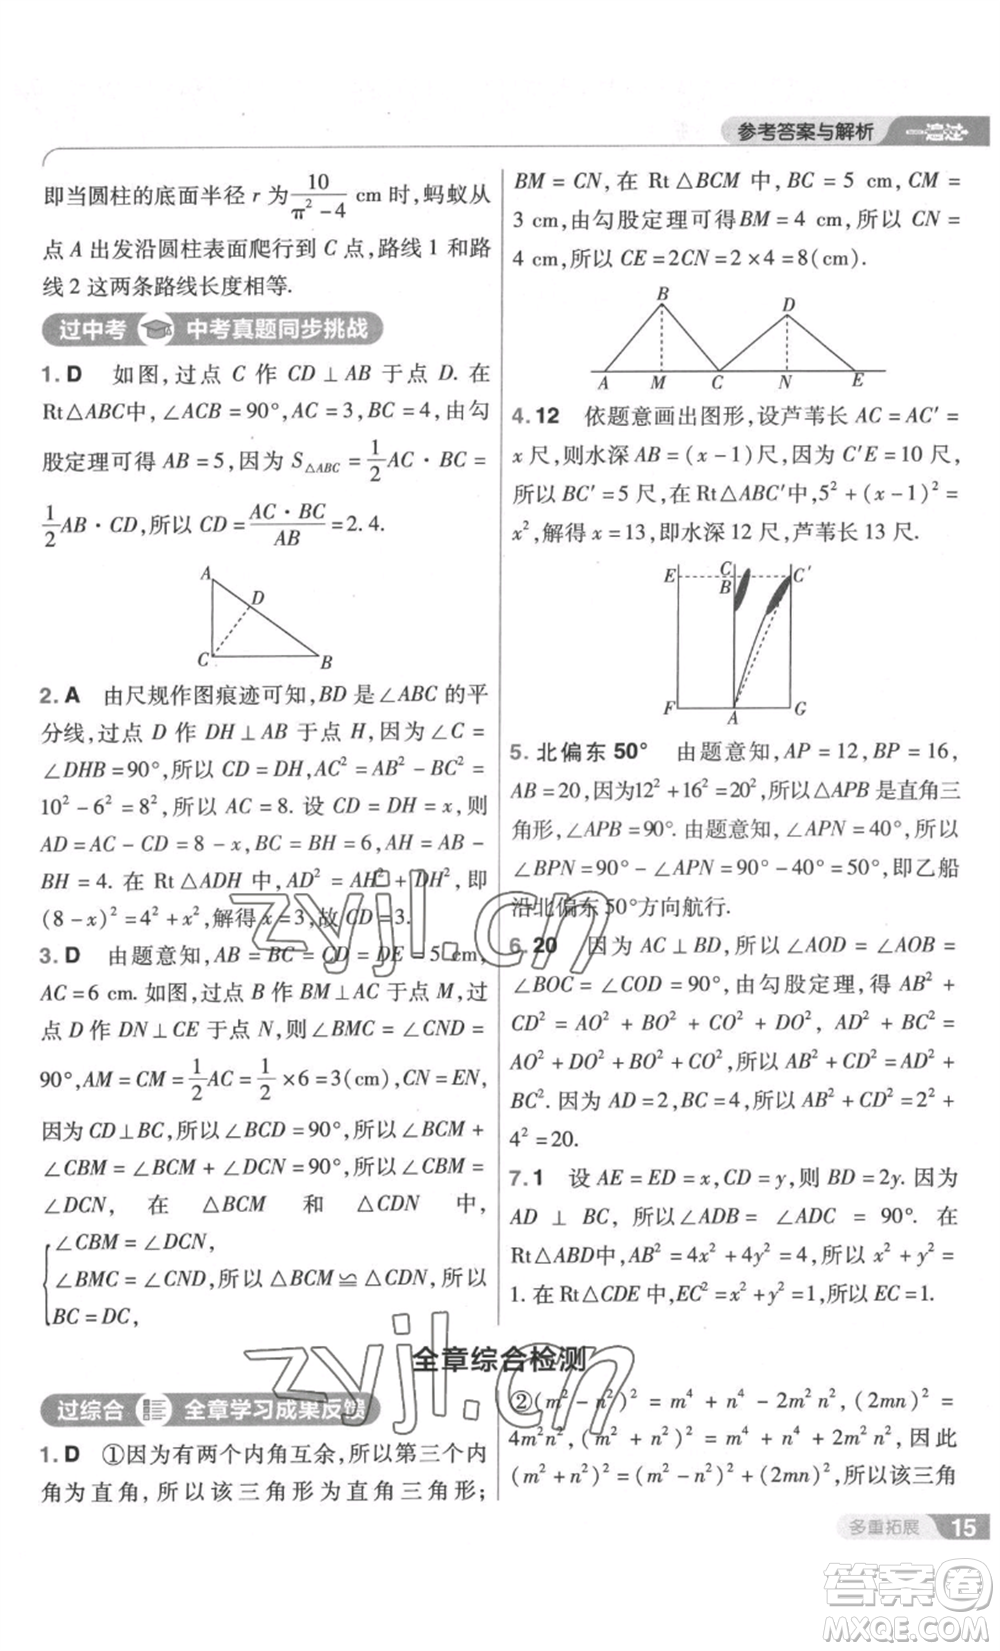 参考答案与解析 一遍过
即当圆柱的底面半径 r 为 10/(π²-4) cm 时,蚂蚁从
点 A 出发沿圆柱表面爬行到 C 点,路线 1 和路
线 2 这两条路线长度相等.
过中考 中考真题同步挑战
1. D 如图,过点 C 作 CD⊥AB 于点 D. 在
Rt△ABC中,∠ACB=90°,AC=3,BC=4,由勾
股定理可得 AB=5,因为 S△ABC=1/2 AC·BC=
1/2 AB·CD,所以 CD=(AC·BC)/AB=2.4.
A
D
C
B
2. A 由尺规作图痕迹可知,BD 是∠ABC 的平
分线,过点 D 作 DH⊥AB 于点 H,因为∠C=
∠DHB=90°,所以 CD=DH,AC²=AB²-BC²=
10²-6²=8²,所以 AC=8. 设 CD=DH=x,则
AD=AC-CD=8-x,BC=BH=6,AH=AB-
BH=4. 在 Rt△ADH 中,AD²=AH²+DH²,即
(8-x)²=4²+x²,解得 x=3,故 CD=3.
3. D 由题意知,AB=BC=CD=DE=5 cm,
AC=6 cm. 如图,过点 B 作 BM⊥AC 于点 M,过
点 D 作 DN⊥CE 于点 N,则∠BMC=∠CND=
90°,AM=CM=1/2 AC=1/2×6=3(cm),CN=EN,
因为 CD⊥BC,所以∠BCD=90°,所以∠BCM+
∠CBM=∠BCM+∠DCN=90°,所以∠CBM=
∠DCN, 在 △BCM 和 △CDN 中,
∠CBM=∠DCN,
∠BMC=∠CND,所以△BCM≌△CDN,所以
BC=DC,
BM=CN,在 Rt△BCM 中,BC=5 cm,CM=
3 cm,由勾股定理可得BM=4 cm,所以 CN=
4 cm,所以 CE=2CN=2×4=8(cm).
B
D
A M C N E
4. 12 依题意画出图形,设芦苇长 AC=AC′=
x 尺,则水深 AB=(x-1)尺,因为 C′E=10 尺,
所以 BC′=5 尺,在Rt△ABC′中,5²+(x-1)²=
x²,解得 x=13,即水深 12 尺,芦苇长 13 尺.
E C C′
B
F A G
5. 北偏东 50° 由题意知,AP=12,BP=16,
AB=20,因为12²+16²=20²,所以△APB 是直角三
角形,∠APB=90°. 由题意知,∠APN=40°,所以
∠BPN=90°-∠APN=90°-40°=50°,即乙船
沿北偏东50°方向航行.
6. 20 因为 AC⊥BD,所以∠AOD=∠AOB=
∠BOC=∠COD=90°,由勾股定理,得 AB²+
CD²=AO²+BO²+CO²+DO², AD²+BC²=
AO²+DO²+BO²+CO²,所以 AB²+CD²=AD²+
BC². 因为 AD=2,BC=4,所以 AB²+CD²=2²+
4²=20.
7. 1 设 AE=ED=x,CD=y,则 BD=2y. 因为
AD ⊥ BC, 所以∠ADB=∠ADC=90°. 在
Rt△ABD中,AB²=4x²+4y²=4,所以 x²+y²=
1. 在 Rt△CDE 中,EC²=x²+y²=1,所以 EC=1.
全章综合检测
过综合 全章学习成果反馈
1. D ①因为有两个内角互余,所以第三个内
角为直角,所以该三角形为直角三角形;
②(m²-n²)²=m⁴+n⁴-2m²n²,(2mn)²=
4m²n²,(m²+n²)²=m⁴+n⁴+2m²n²,因此
(m²+n²)²=(m²-n²)²+(2mn)²,所以该三角
多重拓展 15
zyjl.cn
zyjl.cn
答案圈
MXQE.COM